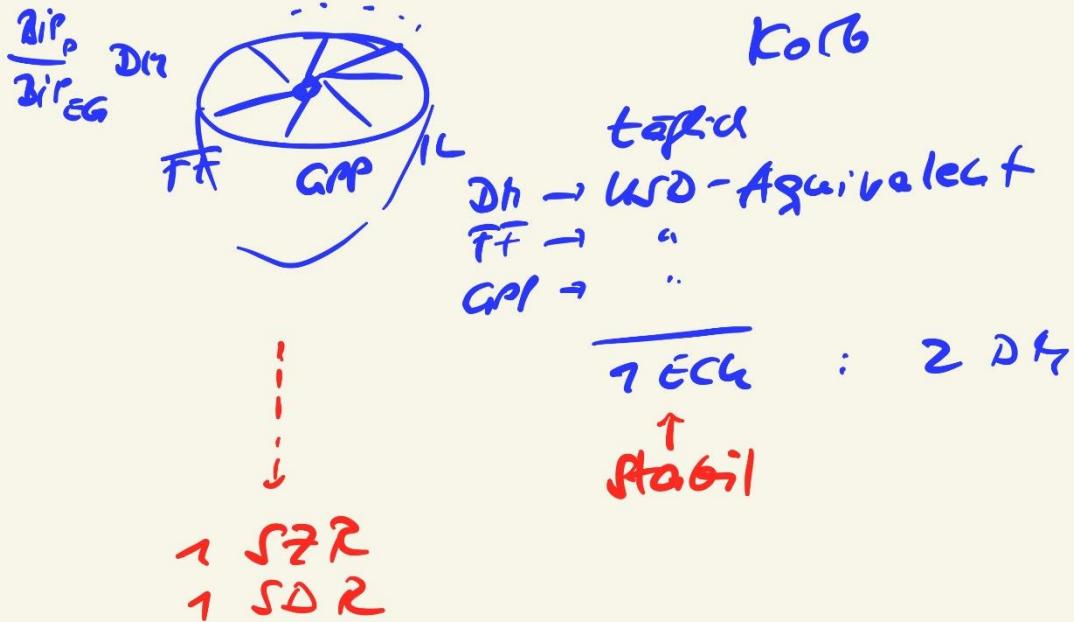 BiP_P
BiP_EG DM
Korb
FF GBP IL
täglich
DM → USD-Äquivalent
FF → "
GBP → "
1 ECU : 2 DM
↑
stabil
1 SZR
1 SDR